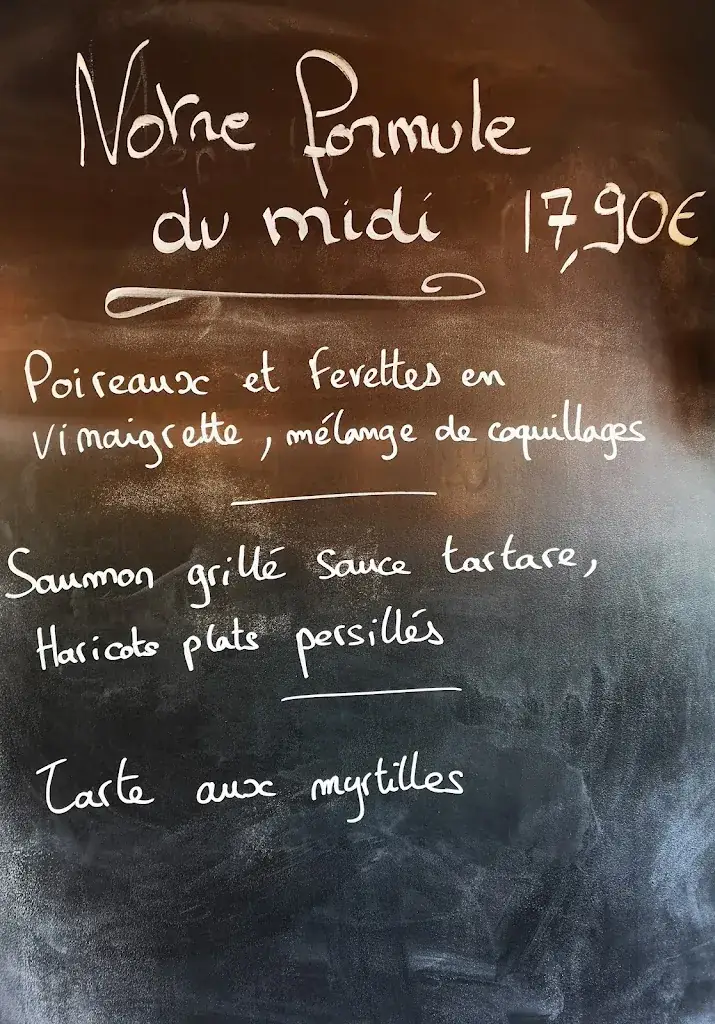 Notre formule
du midi 17,90€
Poireaux et Fevettes en
vinaigrette, mélange de coquillages
Saumon grillé sauce tartare,
Haricots plats persillés
Tarte aux myrtilles